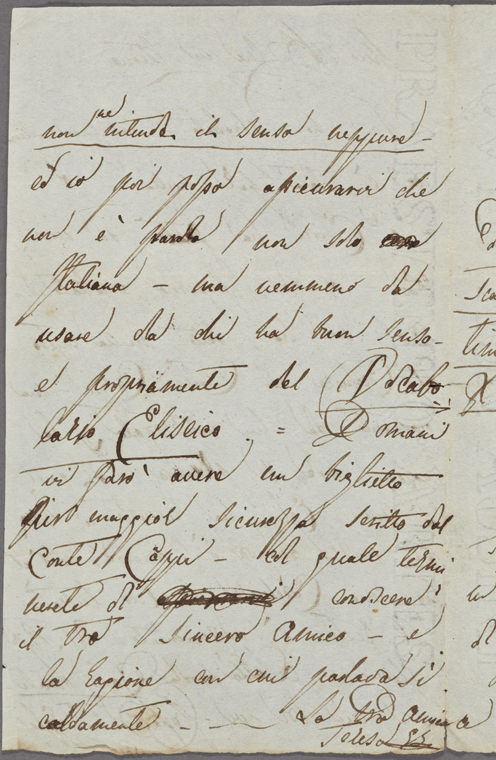 non ne intende il senso neppure -
ed io poi posso assicurarvi che
non è parola non solo
Italiana - ma nemmeno da
usare da chi ha buon senso -
e propriamente del Vocabo
lario Eliseico = Domani
vi farò avere un biglietto
per maggior sicurezza scritto dal
Conte Cappi - col quale termi
nerete di conoscere
il tuo sincero Amico - e
la ragione con cui parlava sì
caldamente - La tua Amica
Teresa